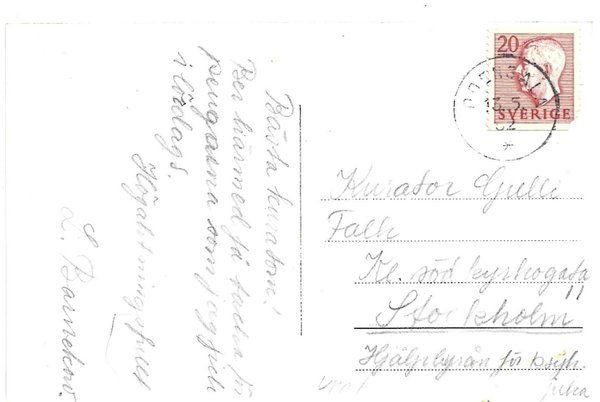 Bästa kuratorn!
Ber härmed få tacka för
pengarna som jag fick
i lördags.
Högaktningsfullt
L. Barnekow.
20
SVERIGE
13.5
52
Kurator Gulli
Falk
Kl. söd kyrkogata
11
Stockholm
Hjälpbyrån för psyk.
sjuka